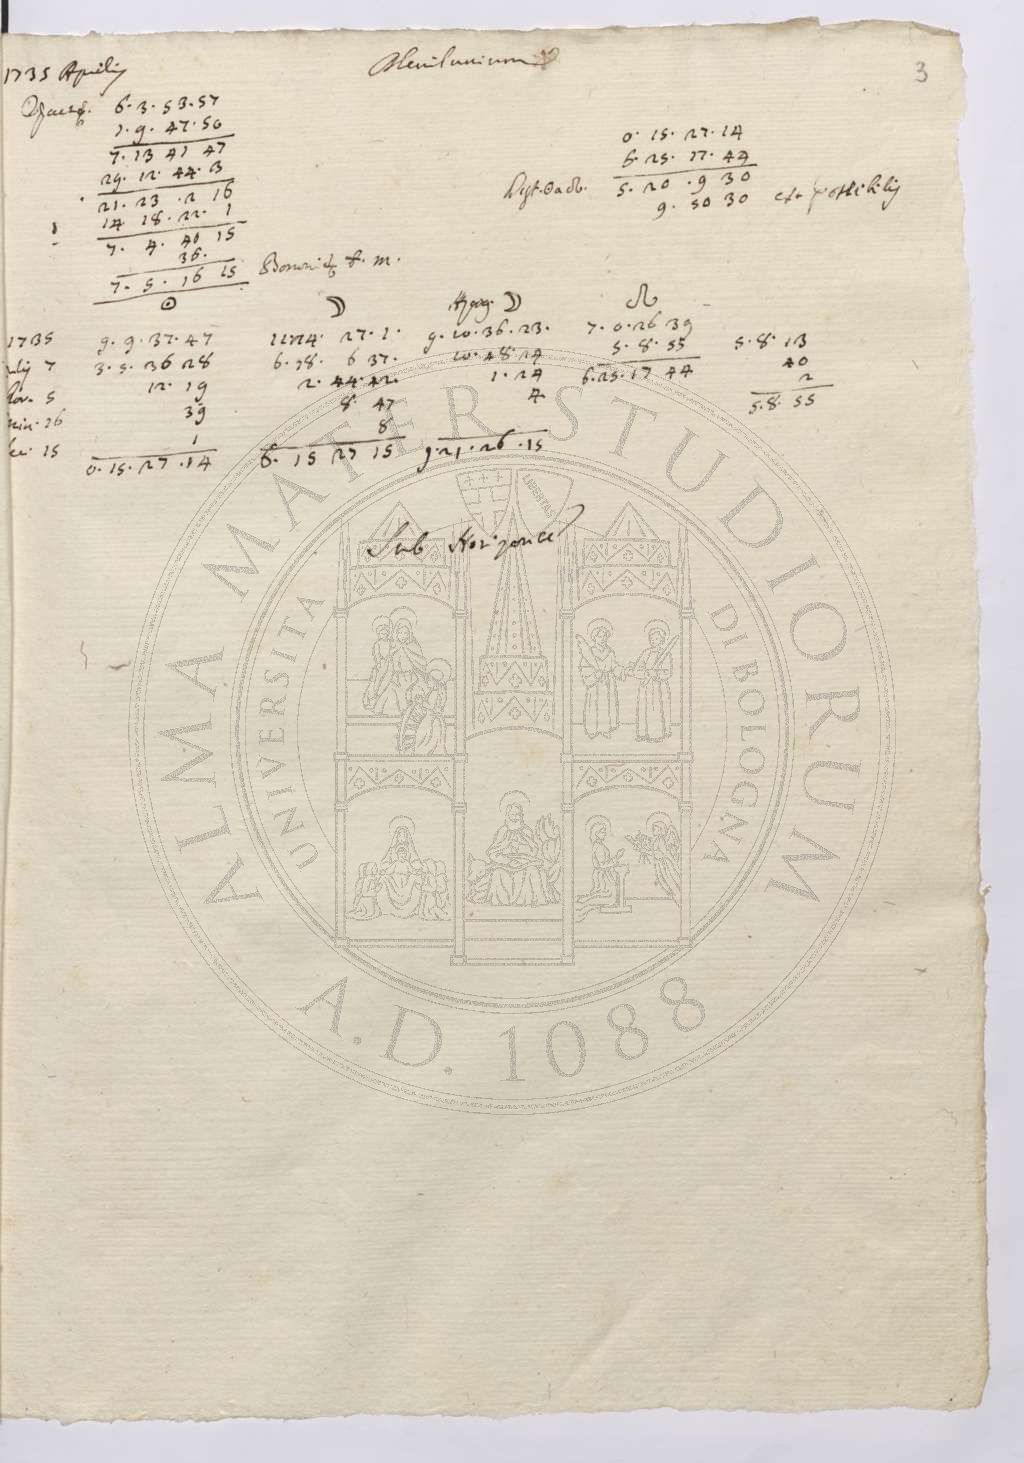 1735 Aprilis
Plenilunium
3
6. 3. 53. 57
1. 9. 47. 50
7. 13 41 47
29. 12. 44. 3
21. 23 . 2 16
14 18. 22. 1
7. 4. 40 15
36.
7. 5. 16 15 Bononiæ t. m.
0. 15. 27. 14
6. 25. 17. 44
Dist. ☉ a ☊. 5. 20 . 9 30
9. 50 30
☉ ☽ Apog. ☽ ☊
1735 9. 9. 37. 47 27. 1. 9. 10. 36. 23. 7. 0. 26 39
7 3. 5. 36 28 6. 18. 6 37. 10. 48. 24 5. 8. 55 5. 8. 13
5 12. 19 2. 44. 42. 1. 24 6. 25. 17 44 40
16 39 8. 47 4 2
15 1 8 5. 8. 55
0. 15. 27 . 14 6. 15 27 15 9. 21. 26 . 15
Sub Horizonte
ALMA MATER STUDIORUM
UNIVERSITA DI BOLOGNA
LIBERTAS
A.D. 1088